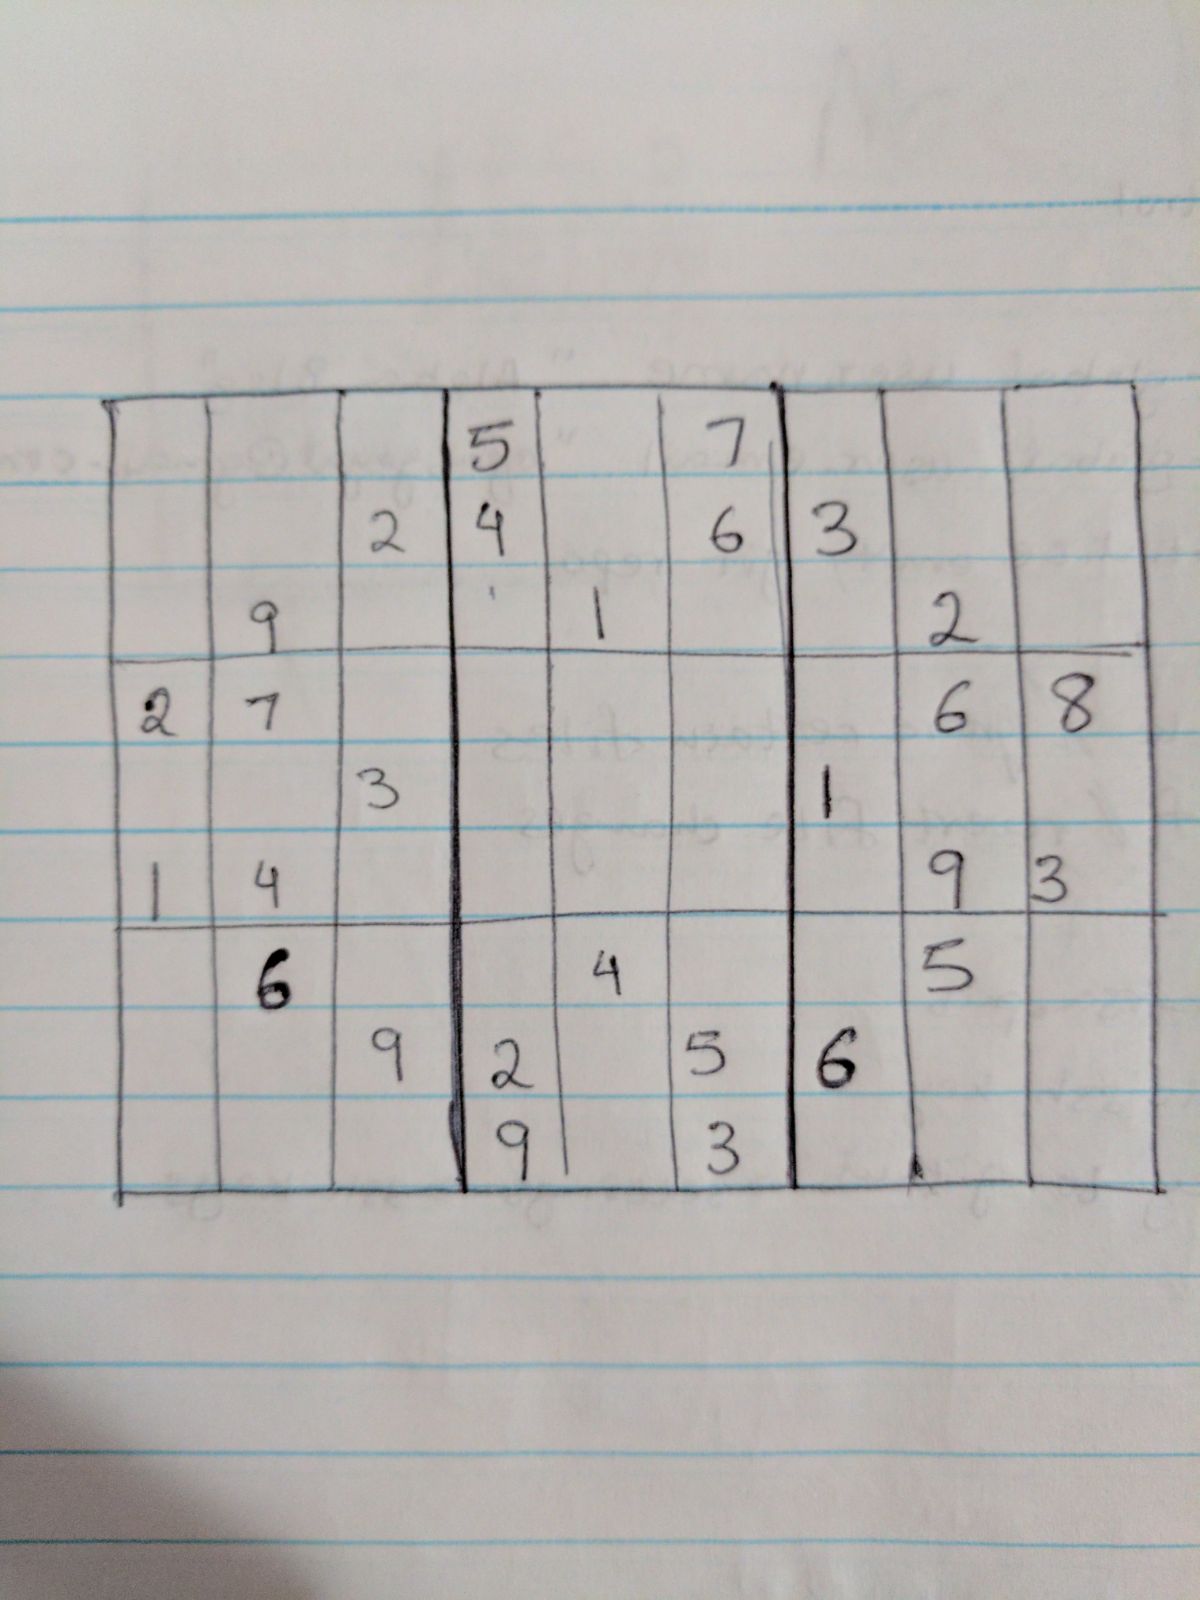 5 7
2 4 6 3
9 1 2
2 7 6 8
3 1
1 4 9 3
6 4 5
9 2 5 6
9 3